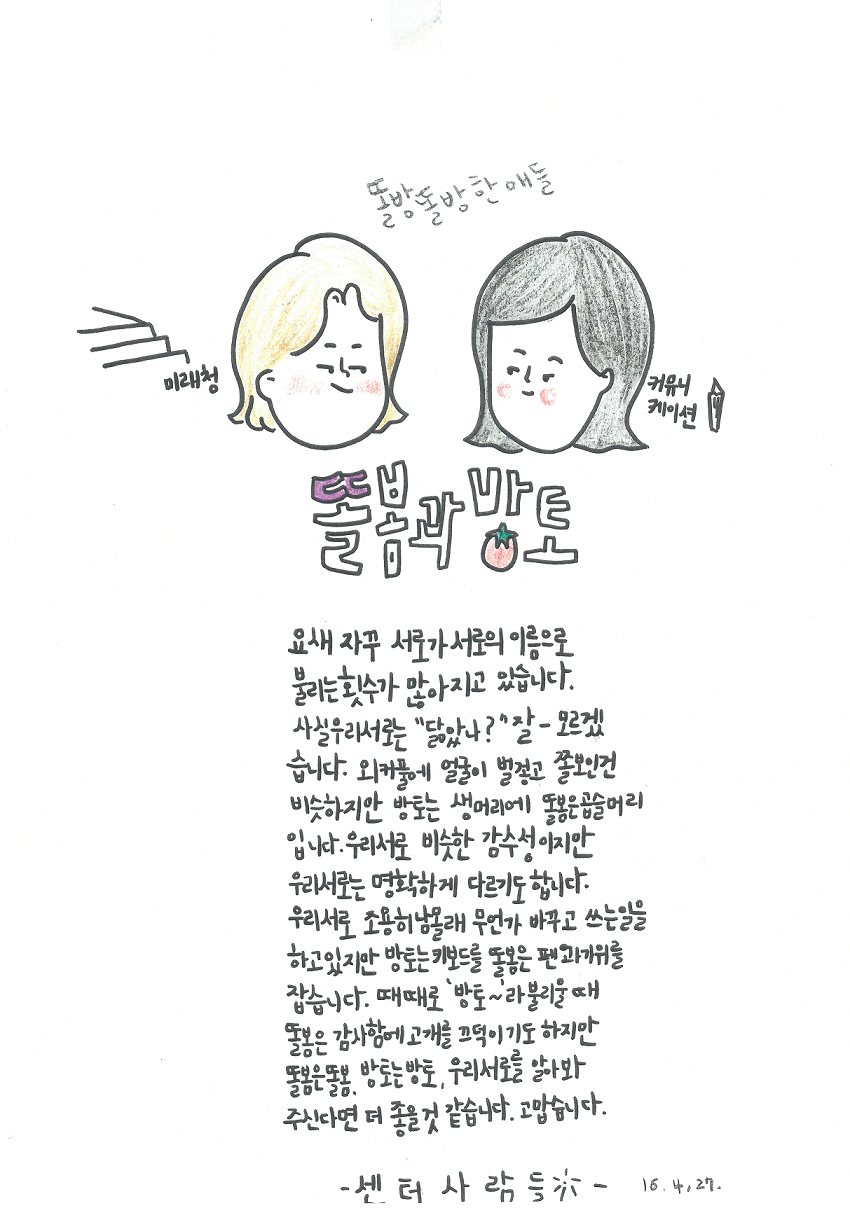 똘방똘방한애들
미래청
커뮤니
케이션
똘봄과 방토
요새 자꾸 서로가 서로의 이름으로
불리는 횟수가 많아지고 있습니다.
사실우리서로는 "닮았나?" 잘 - 모르겠
습니다. 외커풀에 얼굴이 벌겋고 쫄보인건
비슷하지만 방토는 생머리에 똘봄은곱슬머리
입니다. 우리서로 비슷한 감수성이지만
우리서로는 명확하게 다르기도합니다.
우리서로 조용히남몰래 무언가 바꾸고 쓰는일을
하고있지만 방토는키보드를 똘봄은 펜과가위를
잡습니다. 때때로 '방토~'라불리울때
똘봄은 감사함에고개를 끄덕이기도 하지만
똘봄은똘봄, 방토는방토, 우리서로를 알아봐
주신다면 더 좋을것 같습니다. 고맙습니다.
- 센터사람들 -
16.4.27.